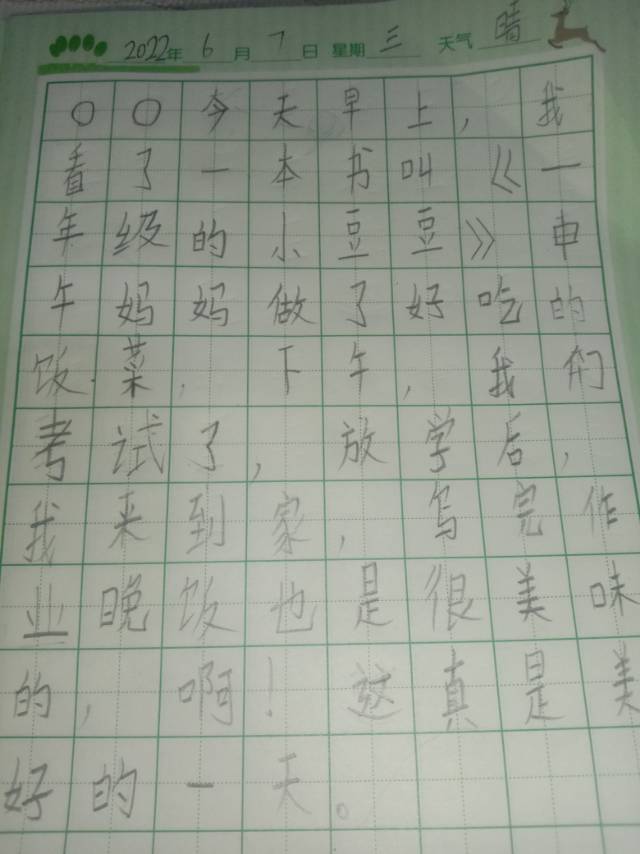 2022年6月7日 星期三 天气 晴
○○今天早上，我
看了一本书叫《一
年级的小豆豆》申
午妈妈做了好吃的
饭菜，下午，我们
考试了，放学后，
我来到家，写完作
业晚饭也是很美味
的，啊！这真是美
好的一天。